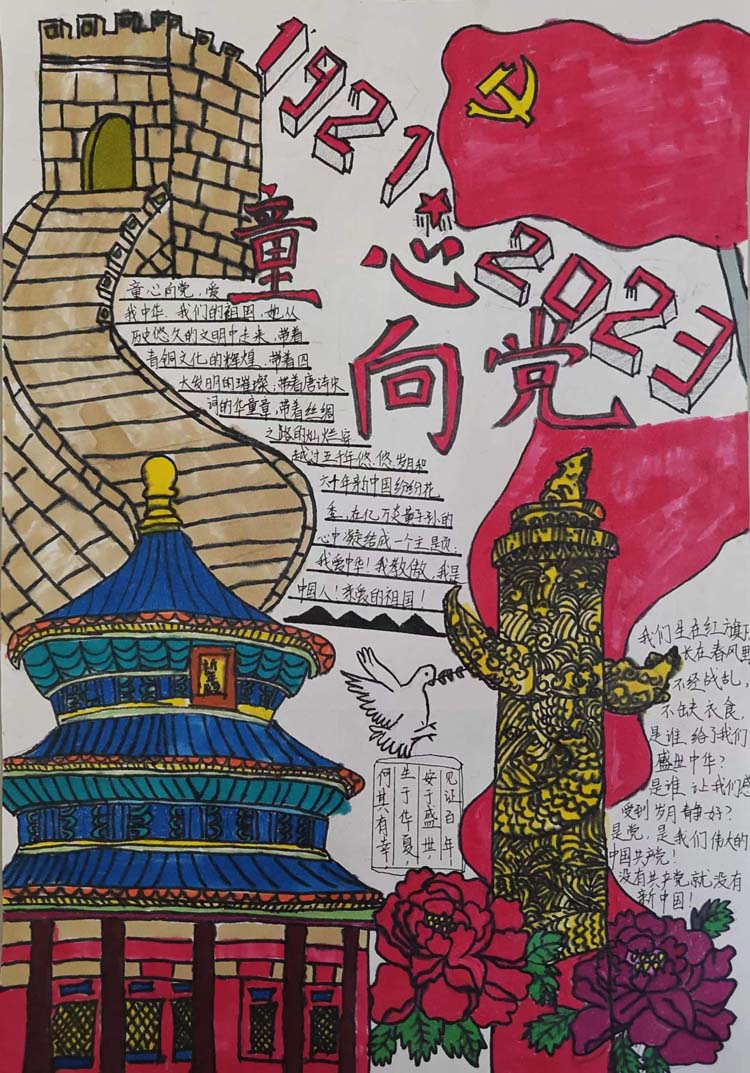 1921
2023
童心
向党
童心向党，爱
我中华，我们的祖国，她从
历史悠久的文明中走来，带着
青铜文化的辉煌，带着四
大发明的璀璨，带着唐诗宋
词的华章，带着丝绸
之路的灿烂
越过五千年悠悠岁月和
六十年新中国缤纷花
季，在亿万炎黄子孙的
心中凝结成一个主题：
我爱中华！我骄傲，我是
中国人！亲爱的祖国！
祈年殿
见证百年
安于盛世，
生于华夏，
何其有幸
我们生在红旗下
长在春风里
不经战乱，
不缺衣食，
是谁给了我们
盛世中华？
是谁让我们感
受到岁月静好？
是党，是我们伟大的
中国共产党！
没有共产党就没有
新中国！